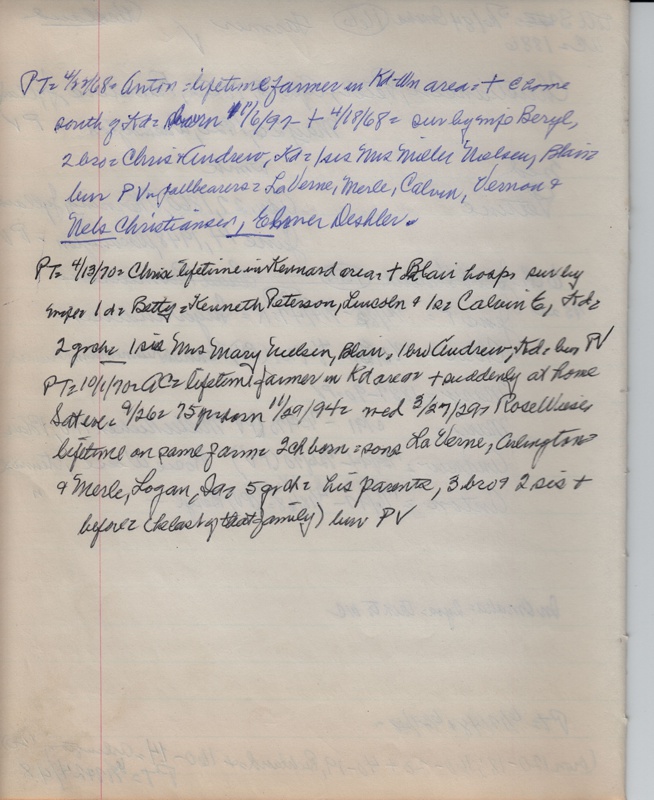 PT= 4/22/68= Anton = lifetime farmer in Kd-Wn area = + @ home
south of Kd = born 11/6/92 + 4/18/68 = sur by wife Beryl,
2 bro = Chris & Andrew, Kd = 1 sis Mrs Nielsen, Blair
bur PV pallbearers = LaVerne, Merle, Calvin, Vernon &
Nels Christiansen, Elmer Deshler.
PT= 4/13/70 = Chris lifetime in Kennard area = + Blair hosp sur by
wife 1 d = Betty = Kenneth Peterson, Lincoln & 1 s = Calvin C, Kd =
2 grch = 1 sis Mrs Mary Nielsen, Blair, 1 bro Andrew, Kd = bur PV
PT= 10/1/70 = AC = lifetime farmer in Kd area = + suddenly at home
Sat eve = 9/26 = 75 yr born 11/29/94 = wed 3/27/29 = Rose
lifetime on same farm = 2 ch born = sons LaVerne, Arlington
& Merle, Logan, Ia = 5 grch = his parents, 3 bro & 2 sis +
before = (he last of that family) bur PV